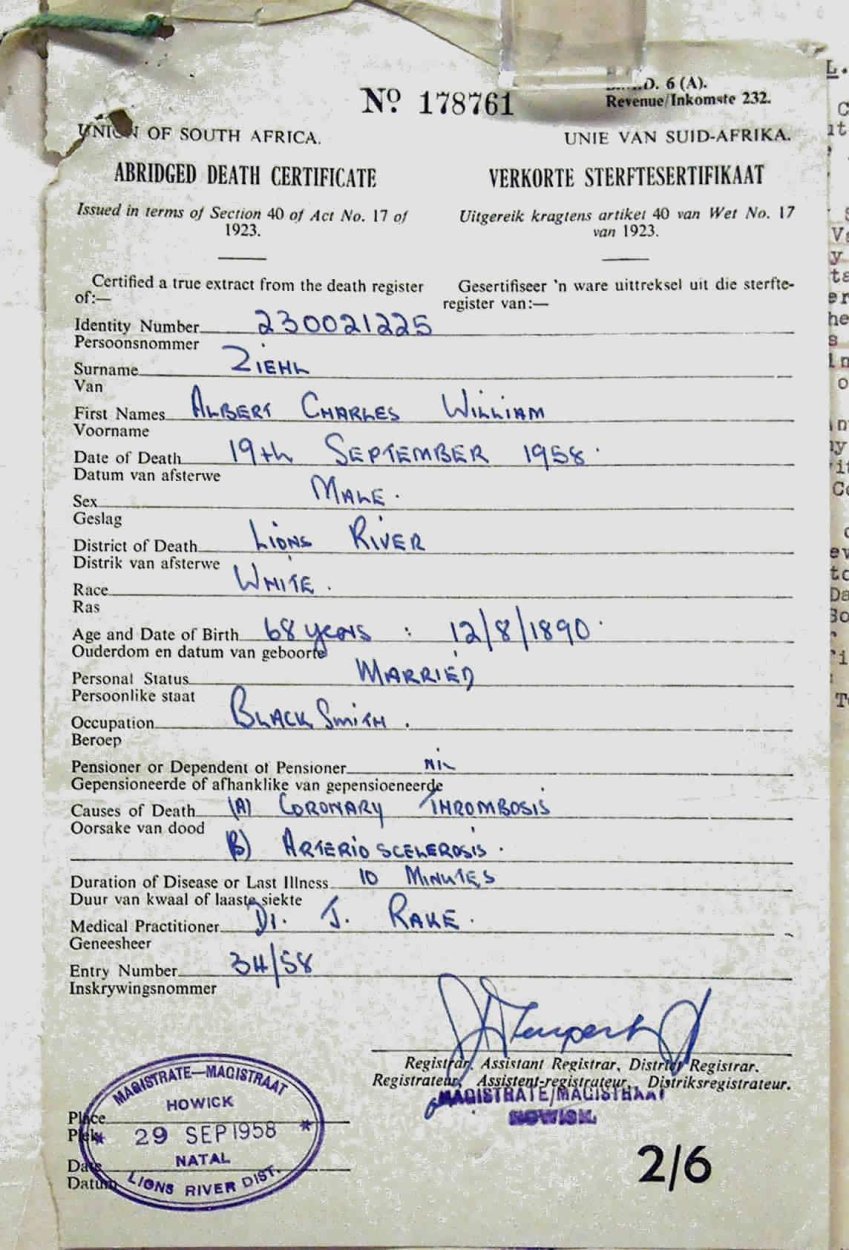 Nº 178761
D. 6 (A).
Revenue/Inkomste 232.
UNION OF SOUTH AFRICA.
UNIE VAN SUID-AFRIKA.
ABRIDGED DEATH CERTIFICATE
VERKORTE STERFTESERTIFIKAAT
Issued in terms of Section 40 of Act No. 17 of
1923.
Uitgereik kragtens artikel 40 van Wet No. 17
van 1923.
Certified a true extract from the death register
of:—
Gesertifiseer 'n ware uittreksel uit die sterfte-
register van:—
Identity Number 230021225
Persoonsnommer
Surname ZIEHL
Van
First Names ALBERT CHARLES WILLIAM
Voorname
Date of Death 19th SEPTEMBER 1958.
Datum van afsterwe
Sex MALE.
Geslag
District of Death LIONS RIVER
Distrik van afsterwe
Race WHITE.
Ras
Age and Date of Birth 68 years : 12/8/1890.
Ouderdom en datum van geboorte
Personal Status MARRIED
Persoonlike staat
Occupation BLACK SMITH.
Beroep
Pensioner or Dependent of Pensioner NIL
Gepensioneerde of afhanklike van gepensioeneerde
Causes of Death (A) CORONARY THROMBOSIS
Oorsake van dood
(B) ARTERIO SCELEROSIS.
Duration of Disease or Last Illness 10 MINUTES
Duur van kwaal of laaste siekte
Medical Practitioner Dr. J. RAKE.
Geneesheer
Entry Number 34/58
Inskrywingsnommer
Registrar, Assistant Registrar, District Registrar.
Registrateur, Assistent-registrateur, Distriksregistrateur.
MAGISTRATE/MAGISTRAAT
HOWICK.
MAGISTRATE—MAGISTRAAT
HOWICK
Place
Plek
29 SEP 1958
NATAL
Date
Datum
LIONS RIVER DIST.
2/6